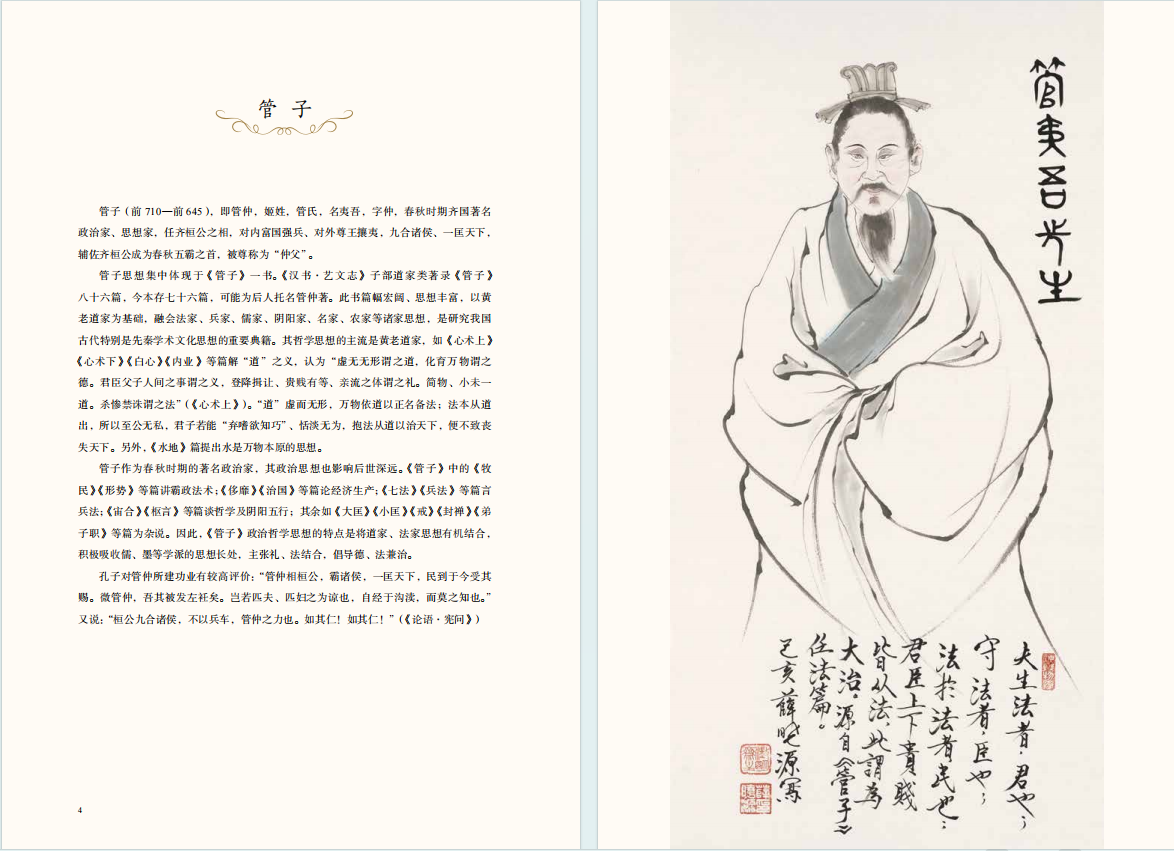 管 子
管子（前 710—前 645），即管仲，姬姓，管氏，名夷吾，字仲，春秋时期齐国著名
政治家、思想家，任齐桓公之相，对内富国强兵、对外尊王攘夷，九合诸侯、一匡天下，
辅佐齐桓公成为春秋五霸之首，被尊称为“仲父”。
管子思想集中体现于《管子》一书。《汉书·艺文志》子部道家类著录《管子》
八十六篇，今本存七十六篇，可能为后人托名管仲著。此书篇幅宏阔、思想丰富，以黄
老道家为基础，融会法家、兵家、儒家、阴阳家、名家、农家等诸家思想，是研究我国
古代特别是先秦学术文化思想的重要典籍。其哲学思想的主流是黄老道家，如《心术上》
《心术下》《白心》《内业》等篇解“道”之义，认为“虚无无形谓之道，化育万物谓之
德。君臣父子人间之事谓之义，登降揖让、贵贱有等、亲流之体谓之礼。简物、小未一
道。杀惨禁诛谓之法”(《心术上》)。“道”虚而无形，万物依道以正名备法；法本从道
出，所以至公无私，君子若能“弃嗜欲知巧”、恬淡无为，抱法从道以治天下，便不致丧
失天下。另外，《水地》篇提出水是万物本原的思想。
管子作为春秋时期的著名政治家，其政治思想也影响后世深远。《管子》中的《牧
民》《形势》等篇讲霸政法术；《侈靡》《治国》等篇论经济生产；《七法》《兵法》等篇言
兵法；《宙合》《枢言》等篇谈哲学及阴阳五行；其余如《大匡》《小匡》《戒》《封禅》《弟
子职》等篇为杂说。因此，《管子》政治哲学思想的特点是将道家、法家思想有机结合，
积极吸收儒、墨等学派的思想长处，主张礼、法结合，倡导德、法兼治。
孔子对管仲所建功业有较高评价：“管仲相桓公，霸诸侯，一匡天下，民到于今受其
赐。微管仲，吾其被发左衽矣。岂若匹夫、匹妇之为谅也，自经于沟渎，而莫之知也。”
又说：“桓公九合诸侯，不以兵车，管仲之力也。如其仁！如其仁！”(《论语·宪问》)
4
管夷吾先生
夫生法者，君也；
守法者，臣也；
法於法者民也；
君臣上下貴賤
皆从法，此謂為
大治。源自《管子》
任法篇。
己亥薛曉源寫